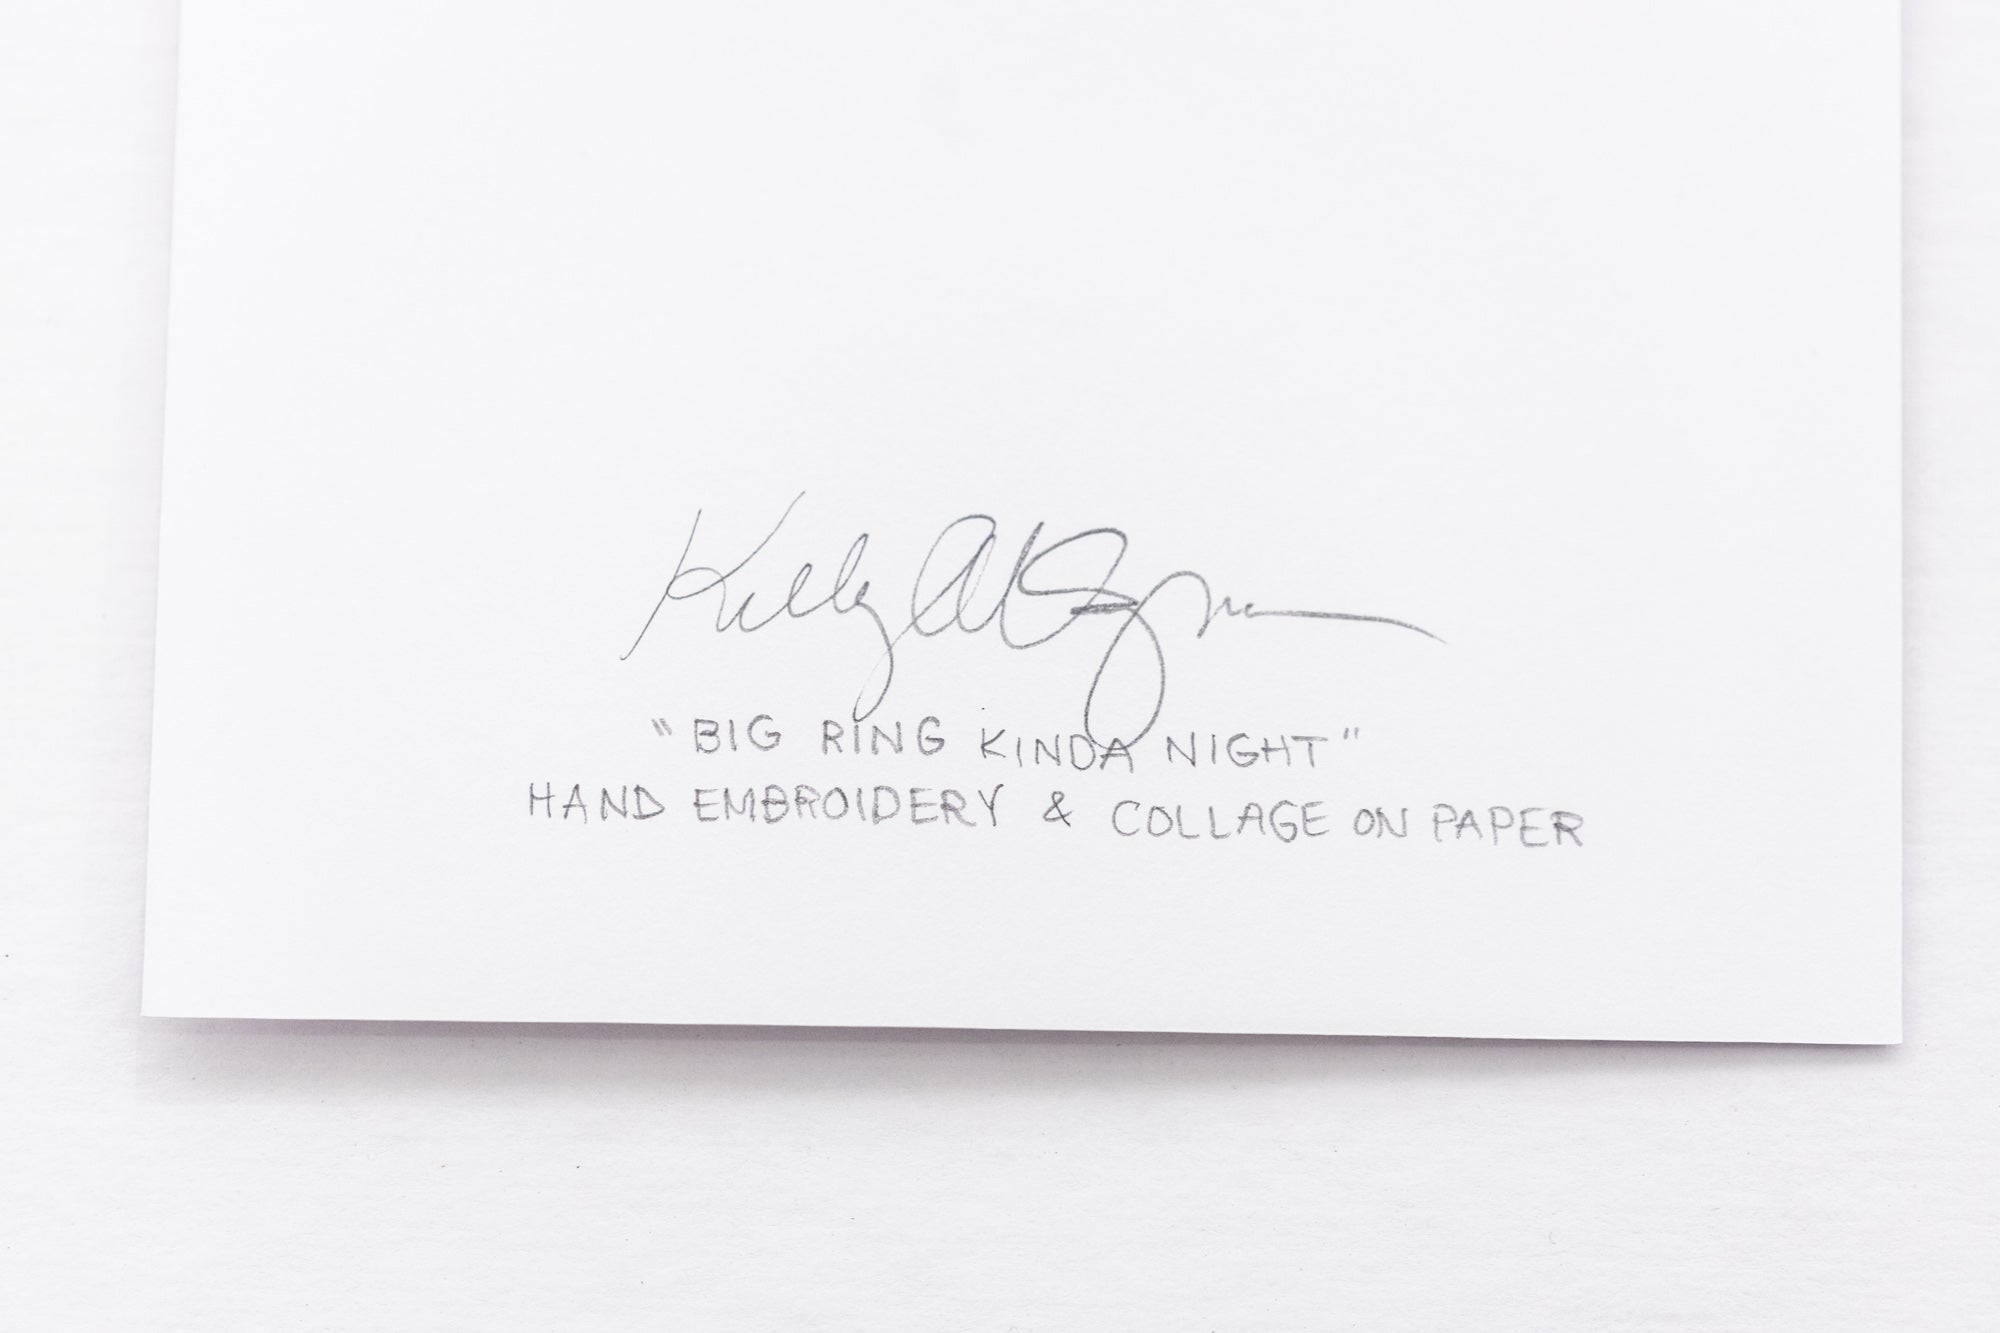 Kelly
"BIG RING KINDA NIGHT"
HAND EMBROIDERY & COLLAGE ON PAPER